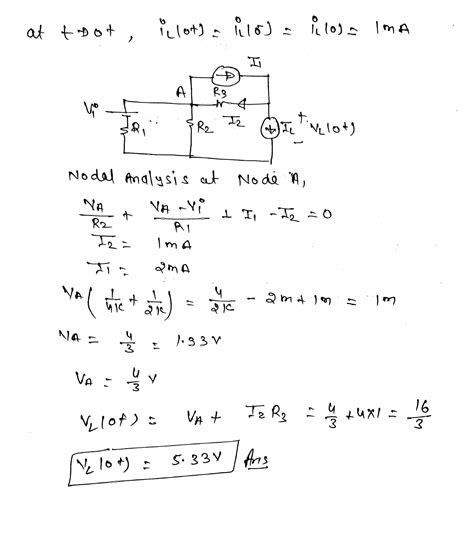 at t→0+, iL(0+) = iL(0-) = iL(0) = 1mA
I1
A
R3
Vi
R1
R2
I2
IL
+
VL(0+)
-
Nodal Analysis at Node A,
VA/R2 + (VA - Vi)/R1 + I1 - I2 = 0
I2 = 1mA
I1 = 2mA
VA (1/4K + 1/2K) = 4/2K - 2m + 1m = 1m
VA = 4/3 = 1.33V
VA = 4/3 V
VL(0+) = VA + I2 R3 = 4/3 + 4×1 = 16/3
VL(0+) = 5.33V Ans